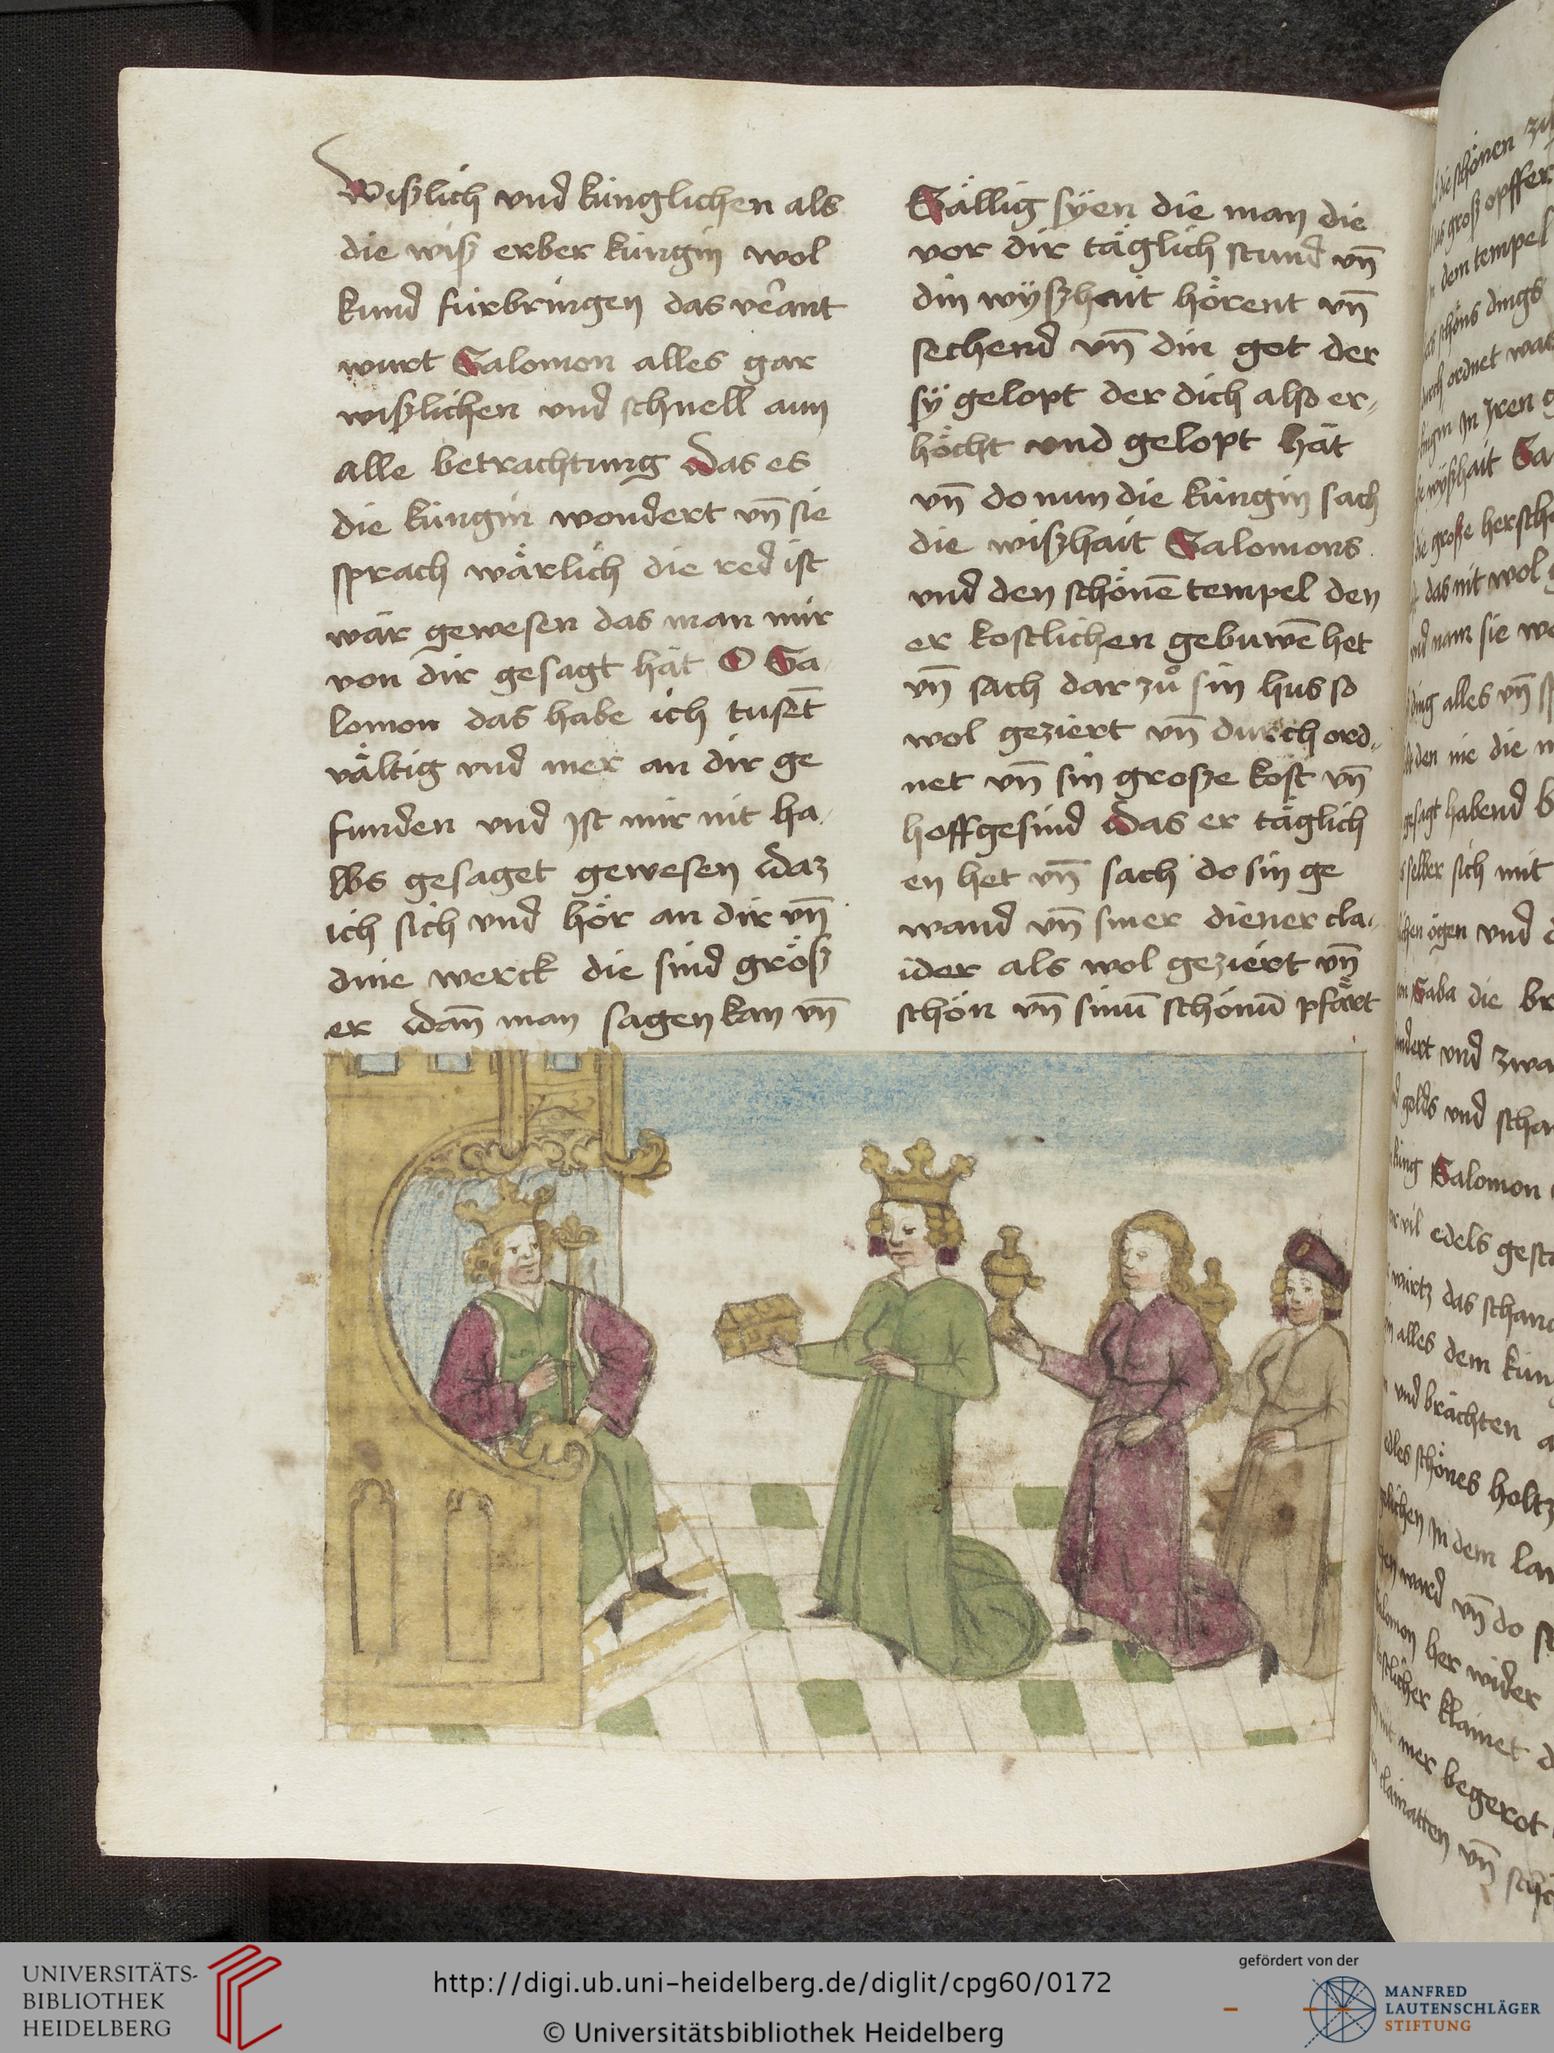 Wißlich vnd künglichen als
die wiß erber küngin wol
kund fürbringen das v̂ant
wurt Salomon alles gar
wißlichen vnd schnell aun
alle betrachtung das es
die küngin wondert vn̄ sie
sprach wärlich die red ist
wär gewesen das man mir
von dir gesagt hät O Sa-
lomon das habe ich tusēt
vältig vnd mer an dir ge
funden vnd ist mir nit ha-
lbs gesaget gewesen daz
ich sich vnd hör an dir vn̄
dine werck die sind größ
er dan̄ man sagen kan vn̄
Sällig syen die man die
vor dir täglich stand vn̄
din wyßhait hörent vn̄
sechend vn̄ din got der
sÿ gelopt der dich also er-
höcht vnd gelopt hät
vn̄ do nun die küngin sach
die wißhait Salomons
vnd den schönē tempel den
er kostlichen gebuwē het
vn̄ sach dar zů sin hus so
wol geziert vn̄ durch ord-
net vn̄ sin große kost vn̄
hoffgesind das er täglich
en het vn̄ sach do sin ge
wand vn̄ siner diener cla-
ider als wol geziert vn̄
schön vn̄ sinū schönū pfärt
schönen
groß opffer
dem tempel
schöns dings
ordnet was
In Iren
wyßhait Sa
die große
das nit wol
nam sie
ding alles vn̄
nie die
gesagt habend
selber sich mit
ögen vnd
Saba die
vnd zwa
golds vnd
küng Salomon
vil edels
würtz das
alles dem kün
vnd brächten
edles schönes holtz
In dem lan
ward vn̄ do
her wider
klainet
mer begerot
vn̄
UNIVERSITÄTS-
BIBLIOTHEK
HEIDELBERG
http://digi.ub.uni-heidelberg.de/diglit/cpg60/0172
© Universitätsbibliothek Heidelberg
gefördert von der
MANFRED
LAUTENSCHLÄGER
STIFTUNG